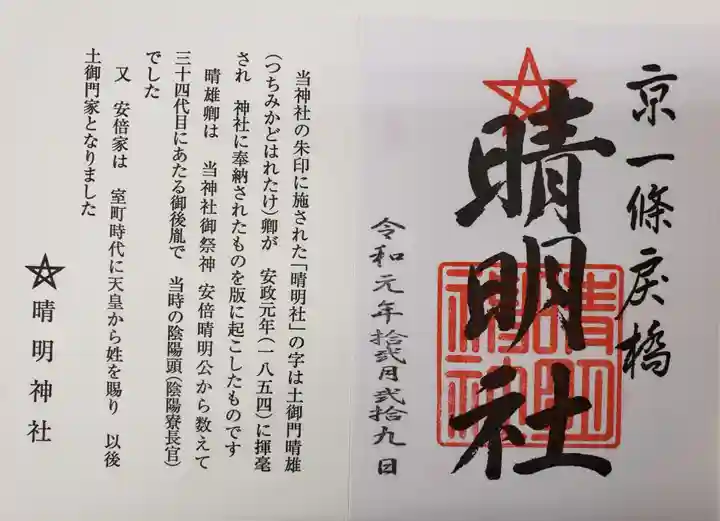 京一條戻橋
晴明社
晴明神社
令和元年拾弐月弐拾九日
当神社の朱印に施された「晴明社」の字は土御門晴雄
(つちみかどはれたけ)卿が 安政元年(一八五四)に揮毫
され 神社に奉納されたものを版に起こしたものです
晴雄卿は 当神社御祭神 安倍晴明公から数えて
三十四代目にあたる御後胤で 当時の陰陽頭(陰陽寮長官)
でした
又 安倍家は 室町時代に天皇から姓を賜り 以後
土御門家となりました
晴明神社